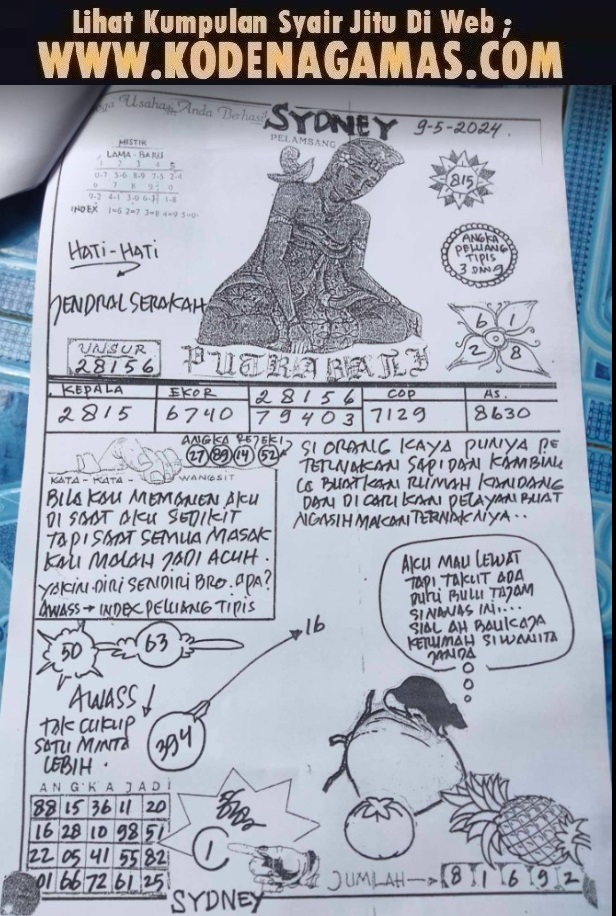 Lihat Kumpulan Syair Jitu Di Web ;
WWW.KODENAGAMAS.COM
Usaha Anda Berhasil
SYDNEY 9-5-2024.
PELAMBANG
MISTIK
LAMA - BARU
1 2 3 4 5
0-7 5-6 8-9 7-5 2-4
6 7 8 9 0
9-2 4-1 3-0 6-3 1-8
INDEX 1=6 2=7 3=8 4=9 5=0
815
HATI-HATI
ANGKA
PELUANG
TIPIS
3 DAN 9
JENDRAL SERAKAH
6 1
2 8
UNSUR
28156
PUTRA BALI
KEPALA EKOR 28156 COP AS.
2815 6740 79403 7129 8630
ANGKA REJEKI
27 89 14 52
KATA - KATA - WANGSIT
BILA KAU MEMANEN AKU
DI SAAT AKU SEDIKIT
TAPI SAAT SEMUA MASAK
KAU MALAH JADI ACUH.
YAKIN DIRI SENDIRI BRO. APA?
AWASS → INDEX PELUANG TIPIS
SI ORANG KAYA PUNYA PE
TERNAKAN SAPI DAN KAMBING
BUATKAN RUMAH KANDANG
DAN DI CARIKAN PELAYAN BUAT
NGASIH MAKAN TERNAKNYA..
AKU MAU LEWAT
TAPI TAKUT ADA
DURI BULU TAJAM
SI NANAS INI...
SIAL AH BALIK AJA
KERUMAH SI WANITA
JANDA
50 63
16
AWASS!
TAK CUKUP
SATU MINTA
LEBIH.
394
ANGKA JADI
88 15 36 11 20
16 28 10 98 51
22 05 41 55 82
01 66 72 61 25
1
SYDNEY
JUMLAH → 8 1 6 9 2